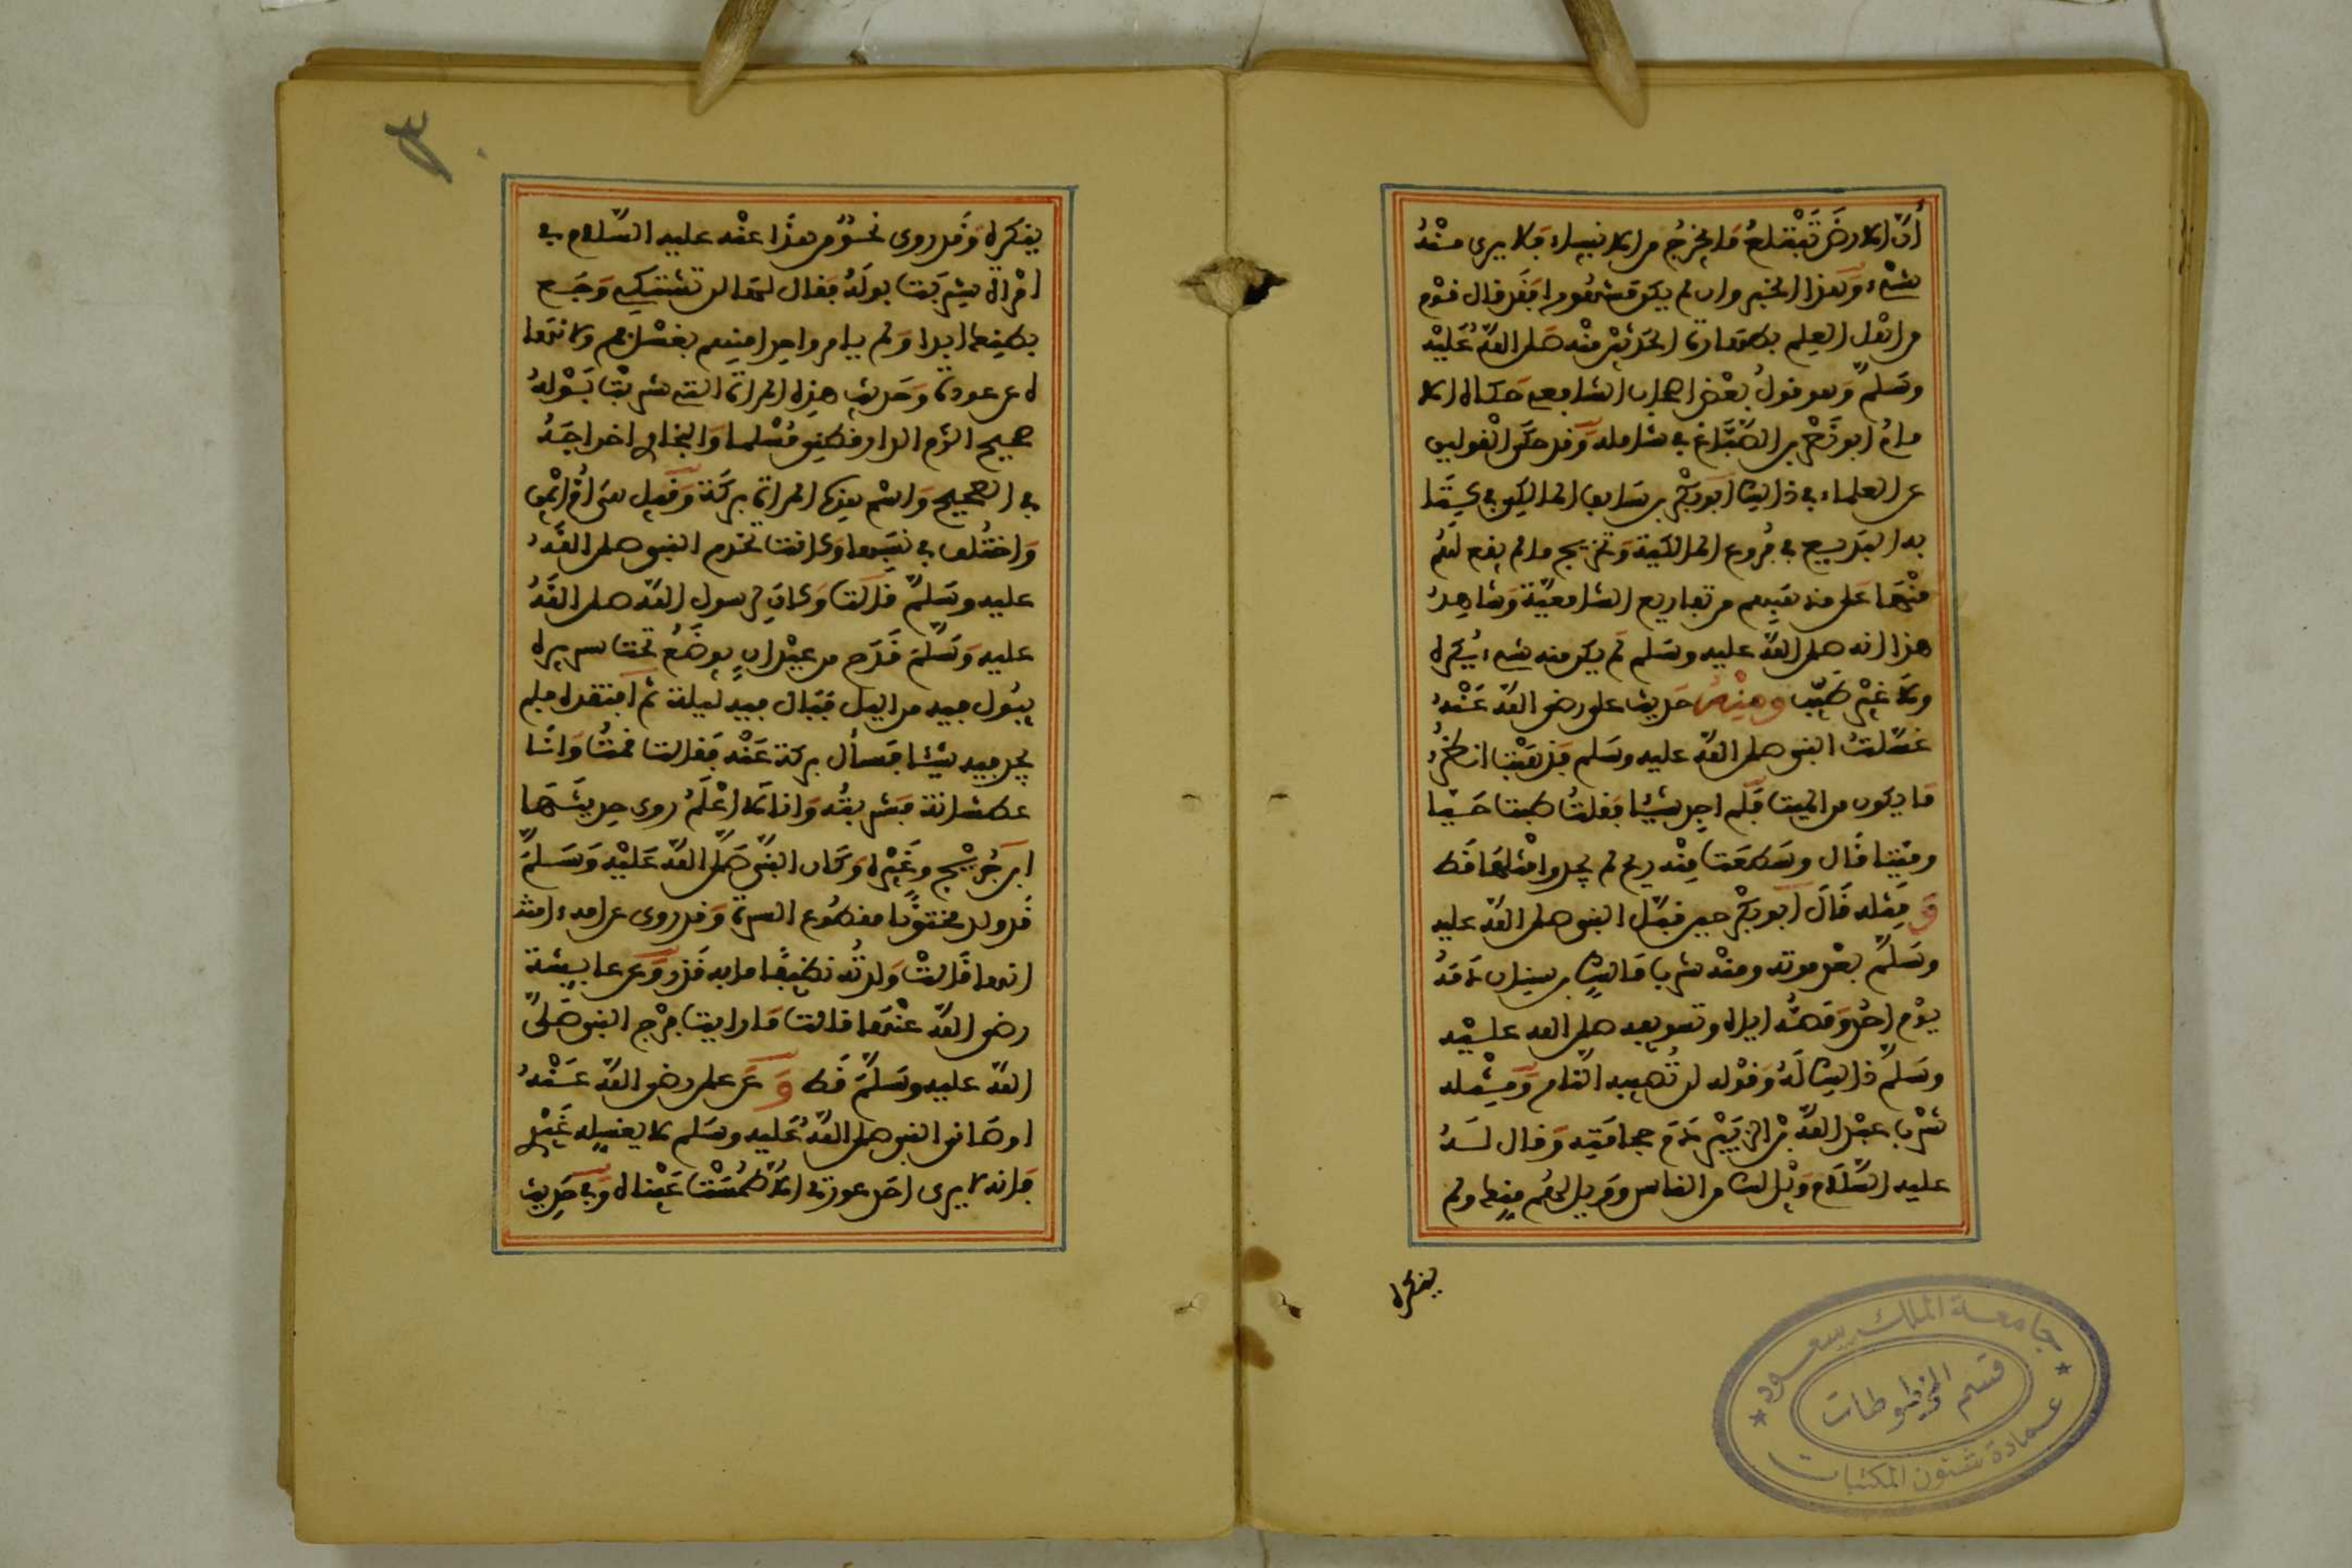 أنّ الارض تبتلع ما يخرج من الانبياء فلا يرى منه
شيء وهذا الخبر وان لم يكن مشهورا فقد قال قوم
من اهل العلم بطهارة الحدثين منه صلى الله عليه
وسلم وهو قول بعض اصحاب الشافعي حكاه الا
مام ابو نصر بن الصباغ في شامله وقد حكى القولين
عن العلماء في ذلك ابو بكر بن سابق المالكي في كتا
به البديع في فروع المالكية وتخريج ما لم يقع لهم
منها على مذهبهم من تفاريع الشافعية وشاهد
هذا انه صلى الله عليه وسلم لم يكن منه شيء يكره
ولا غير طيب ومنه حديث علي رضي الله عنه
غسلت النبي صلى الله عليه وسلم فذهبت انظر
ما يكون من الميت فلم اجد شيئا فقلت طبت حيا
وميتا قال وسطعت منه ريح لم يجدوا مثلها قط
ومثله قال ابو بكر حين قبّل النبي صلى الله عليه
وسلم بعد موته ومنه شرب مالك بن سنان دمه
يوم احد ومصه اياه وتسويغه صلى الله عليه
وسلم ذلك له وقوله لن تصيبه النار ومثله
شرب عبد الله بن الزبير دم حجامته وقال له
عليه السلام ويل لك من الناس وويل لهم منك ولم
ينكره
جامعة الملك سعود
قسم المخطوطات
عمادة شئون المكتبات
٣
ينكره وقد روي نحو من هذا عنه عليه السلام في
امراة شربت بوله فقال لها لن تشتكي وجع
بطنك ابدا ولم يامر واحدا منهم بغسل فم ولا نها
ه عن عودة وحديث هذه المراة التي شربت بوله
صحيح الزم الدارقطني مسلما والبخاري اخراجه
في الصحيح واسم هذه المراة بركة وقيل هي ام ايمن
واختلف في نسبها وكانت تخدم النبي صلى الله
عليه وسلم قالت وكان لرسول الله صلى الله
عليه وسلم قدح من عيدان يوضع تحت سريره
يبول فيه من الليل فبال فيه ليلة ثم افتقده فلم
يجد فيه شيئا فسأل بركة عنه فقالت قمت وانا
عطشانة فشربته وانا لا اعلم روى حديثها
ابن جريج وغيره وكان النبي صلى الله عليه وسلم
قد ولد مختونا مقطوع السرة وقد روي عن امه ءامنة
انها قالت ولدته نظيفا ما به قذر وعن عايشة
رضي الله عنها قالت ما رايت فرج النبي صلى
الله عليه وسلم قط وعن علي رضي الله عنه
اوصاني النبي صلى الله عليه وسلم لا يغسله غيري
فانه لا يرى احد عورتي الا طمست عيناه وفي حديث